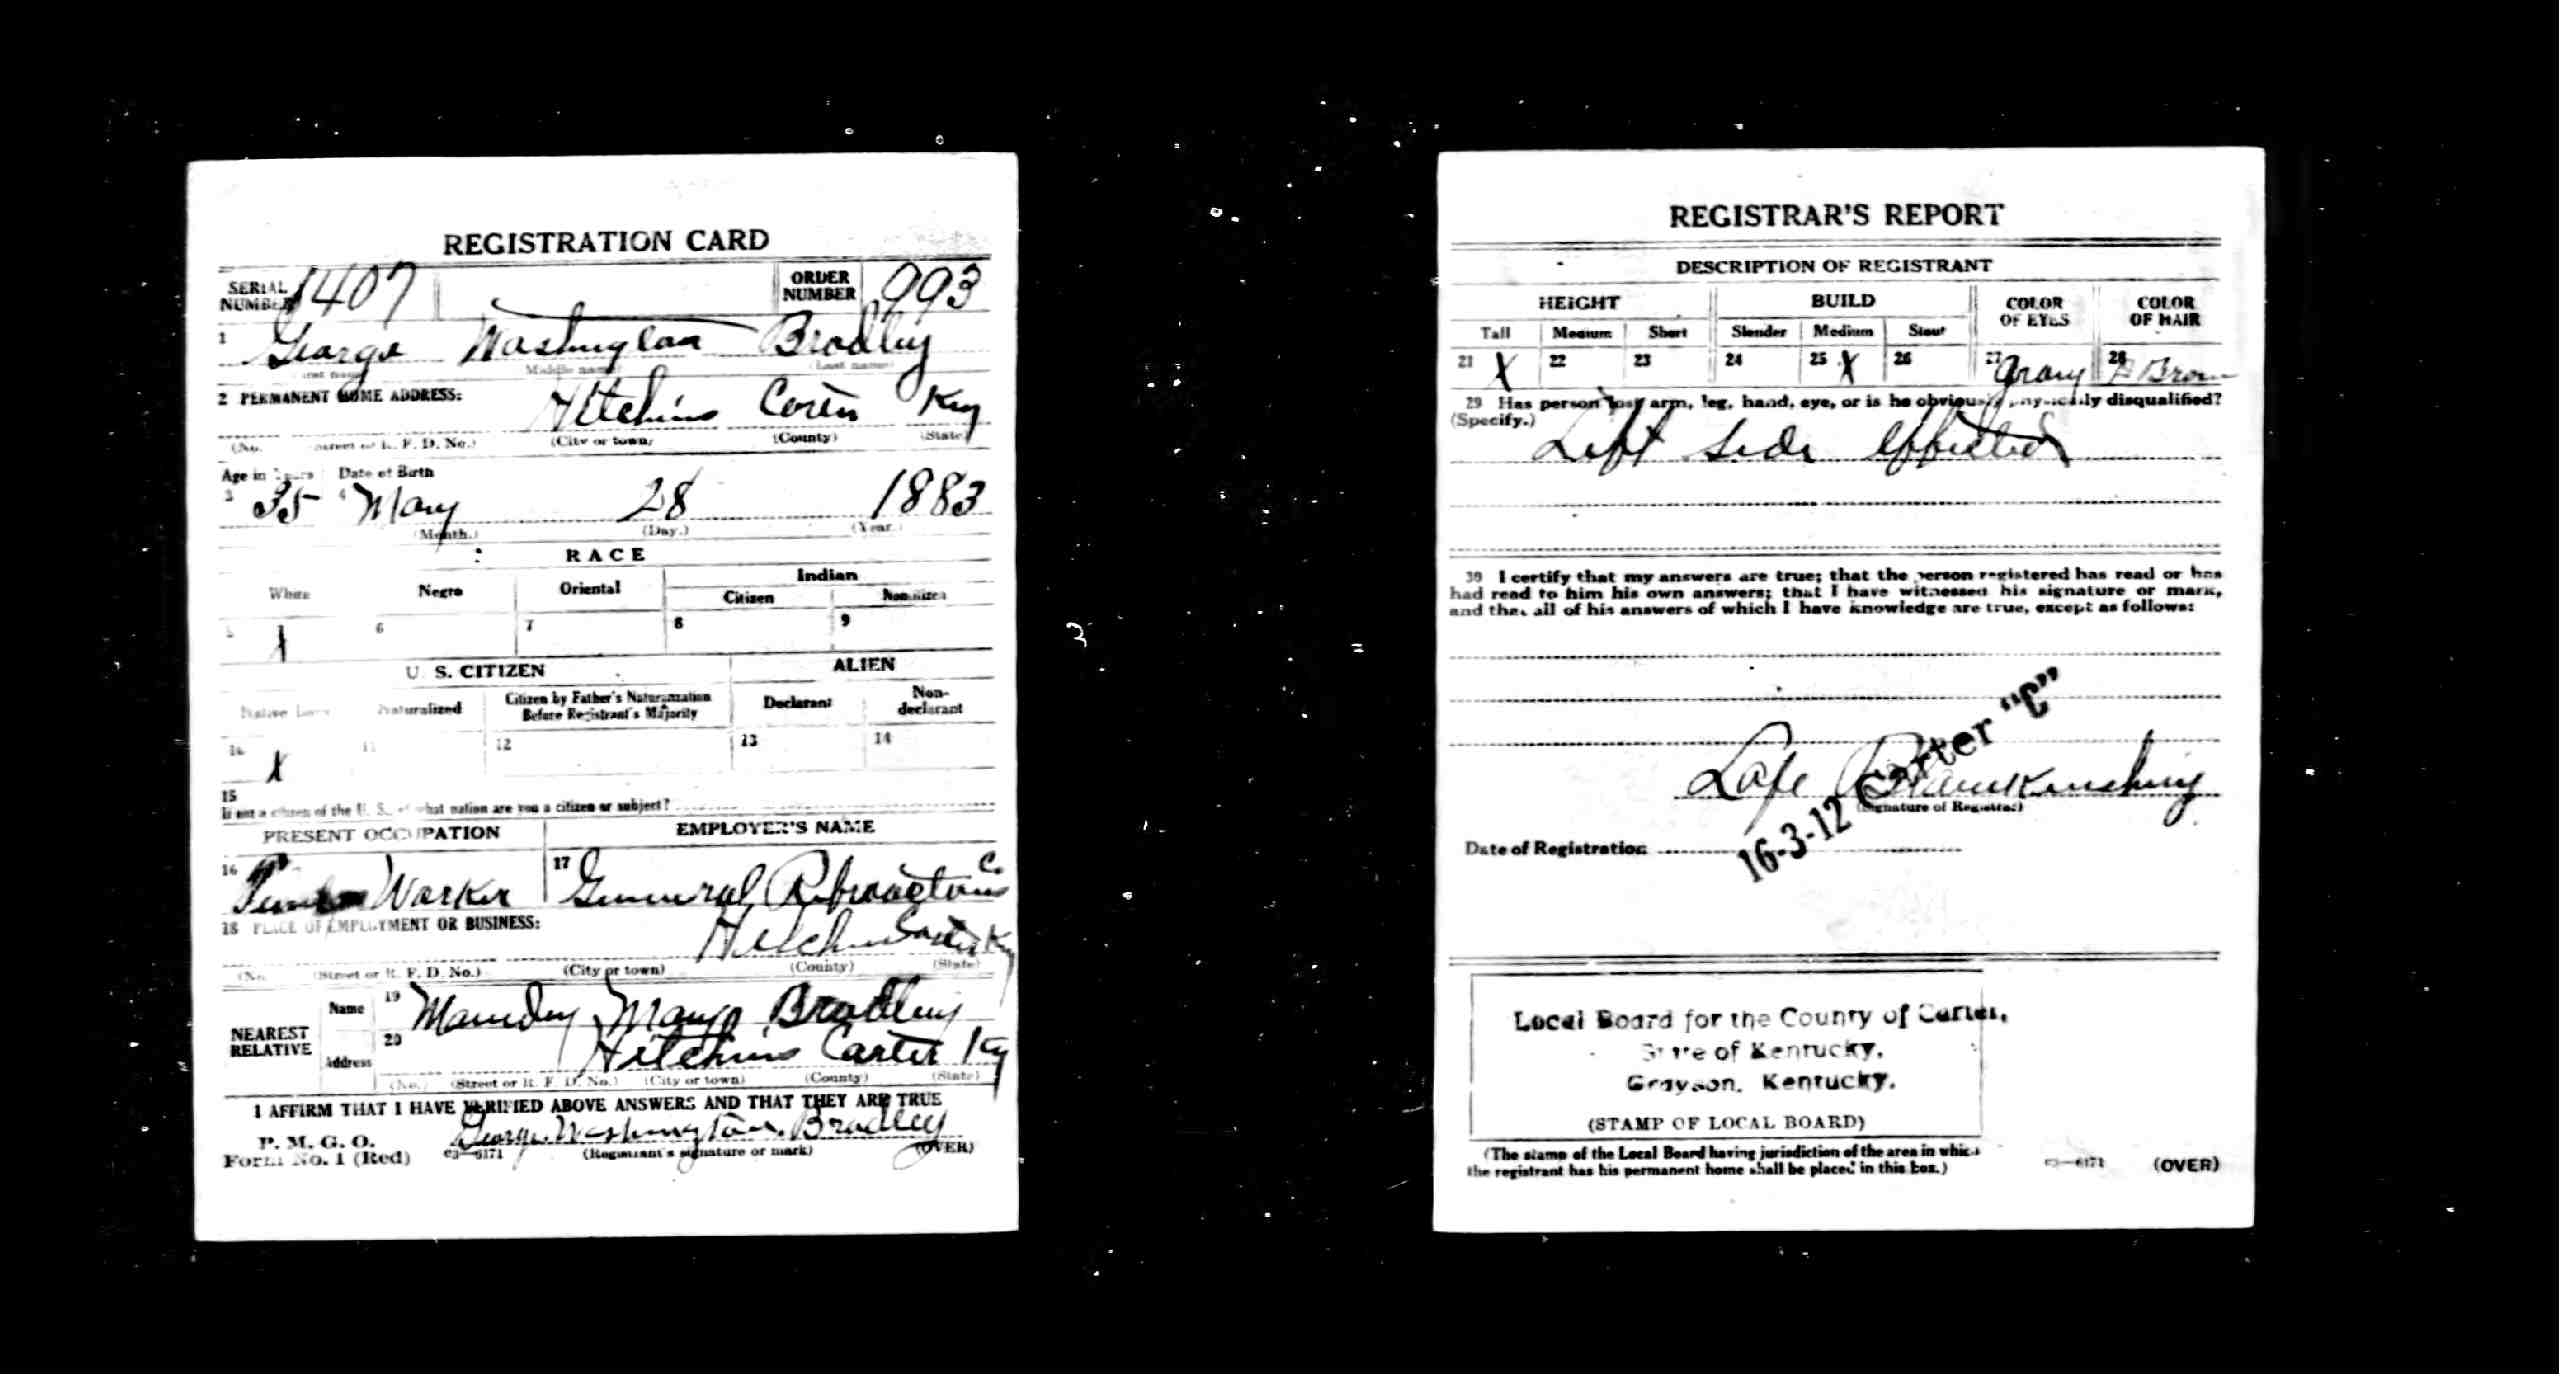 REGISTRATION CARD
SERIAL NUMBER 1407 ORDER NUMBER 993
1 George Washington Bradley
(First name) Middle name) (Last name)
2 PERMANENT HOME ADDRESS: Hitchins Ky
(No. Street or R. F. D. No.) (City or town) (County) (State)
Age in Years Date of Birth
3 35 4 May 28 1883
(Month.) (Day.) (Year.)
RACE
White Negro Oriental Indian
Citizen Noncitizen
5 X 6 7 8 9
U. S. CITIZEN ALIEN
Native Born Naturalized Citizen by Father's Naturalization Before Registrant's Majority Declarant Non-declarant
10 X 11 12 13 14
15
If not a citizen of the U. S., of what nation are you a citizen or subject?
PRESENT OCCUPATION EMPLOYER'S NAME
16 Worker 17 General Co
18 PLACE OF EMPLOYMENT OR BUSINESS:
Hitchins Carter Ky
(No. (Street or R. F. D. No.) (City or town) (County) (State)
NEAREST RELATIVE
Name 19 Bradley
Address 20 Hitchins Carter Ky
(No.) (Street or R. F. D. No.) (City or town) (County) (State)
I AFFIRM THAT I HAVE VERIFIED ABOVE ANSWERS AND THAT THEY ARE TRUE
P. M. G. O.
Form No. 1 (Red) 03—6171 George Washington Bradley
(Registrant's signature or mark) (OVER)
REGISTRAR'S REPORT
DESCRIPTION OF REGISTRANT
HEIGHT BUILD COLOR OF EYES COLOR OF HAIR
Tall Medium Short Slender Medium Stout
21 X 22 23 24 25 X 26 27 Gray 28 Brown
29 Has person lost arm, leg, hand, eye, or is he obviously physically disqualified?
(Specify.) Left side
30 I certify that my answers are true; that the person registered has read or has
had read to him his own answers; that I have witnessed his signature or mark,
and that all of his answers of which I have knowledge are true, except as follows:
(Signature of Registrar)
Date of Registration
16-3-12 Carter "C"
Local Board for the County of Carter,
State of Kentucky,
Grayson, Kentucky.
(STAMP OF LOCAL BOARD)
(The stamp of the Local Board having jurisdiction of the area in which
the registrant has his permanent home shall be placed in this box.)
03—6171 (OVER)